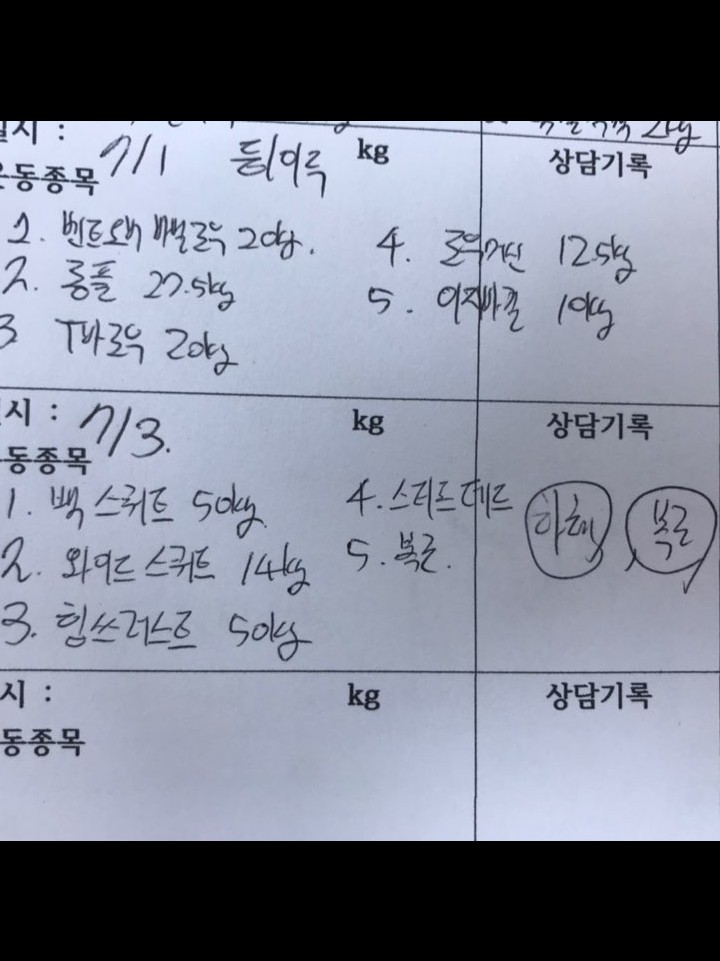 2kg
일시 : 7/1 등/이두 kg 상담기록
운동종목
1. 벤트오버 바벨로우 20kg. 4. 로우머신 12.5kg
2. 롱풀 27.5kg 5. 이지바컬 10kg
3 T바로우 20kg
일시 : 7/3. kg 상담기록
동종목
1. 백 스쿼트 50kg 4. 스티프 데드 하체 복근
2. 와이드 스쿼트 14kg 5. 복근.
3. 힙쓰러스트 50kg
시 : kg 상담기록
동종목